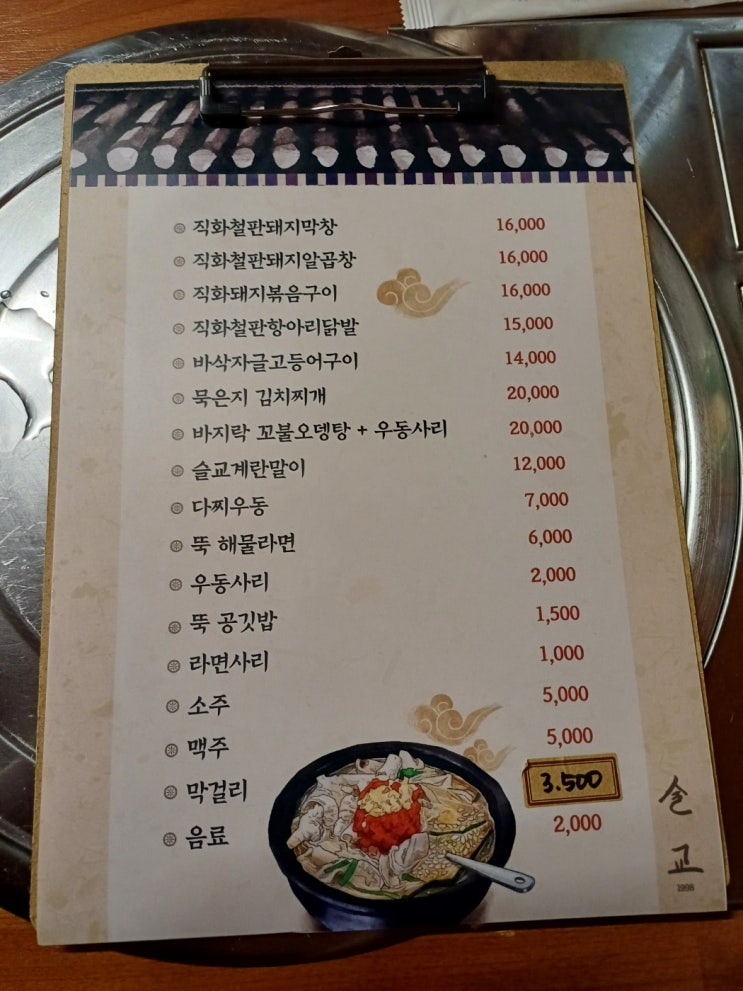 직화철판돼지막창 16,000
직화철판돼지알곱창 16,000
직화돼지볶음구이 16,000
직화철판항아리닭발 15,000
바삭자글고등어구이 14,000
묵은지 김치찌개 20,000
바지락 꼬불오뎅탕 + 우동사리 20,000
슬교계란말이 12,000
다찌우동 7,000
뚝 해물라면 6,000
우동사리 2,000
뚝 공깃밥 1,500
라면사리 1,000
소주 5,000
맥주 5,000
막걸리 3.500
음료 2,000
슬
교
1998